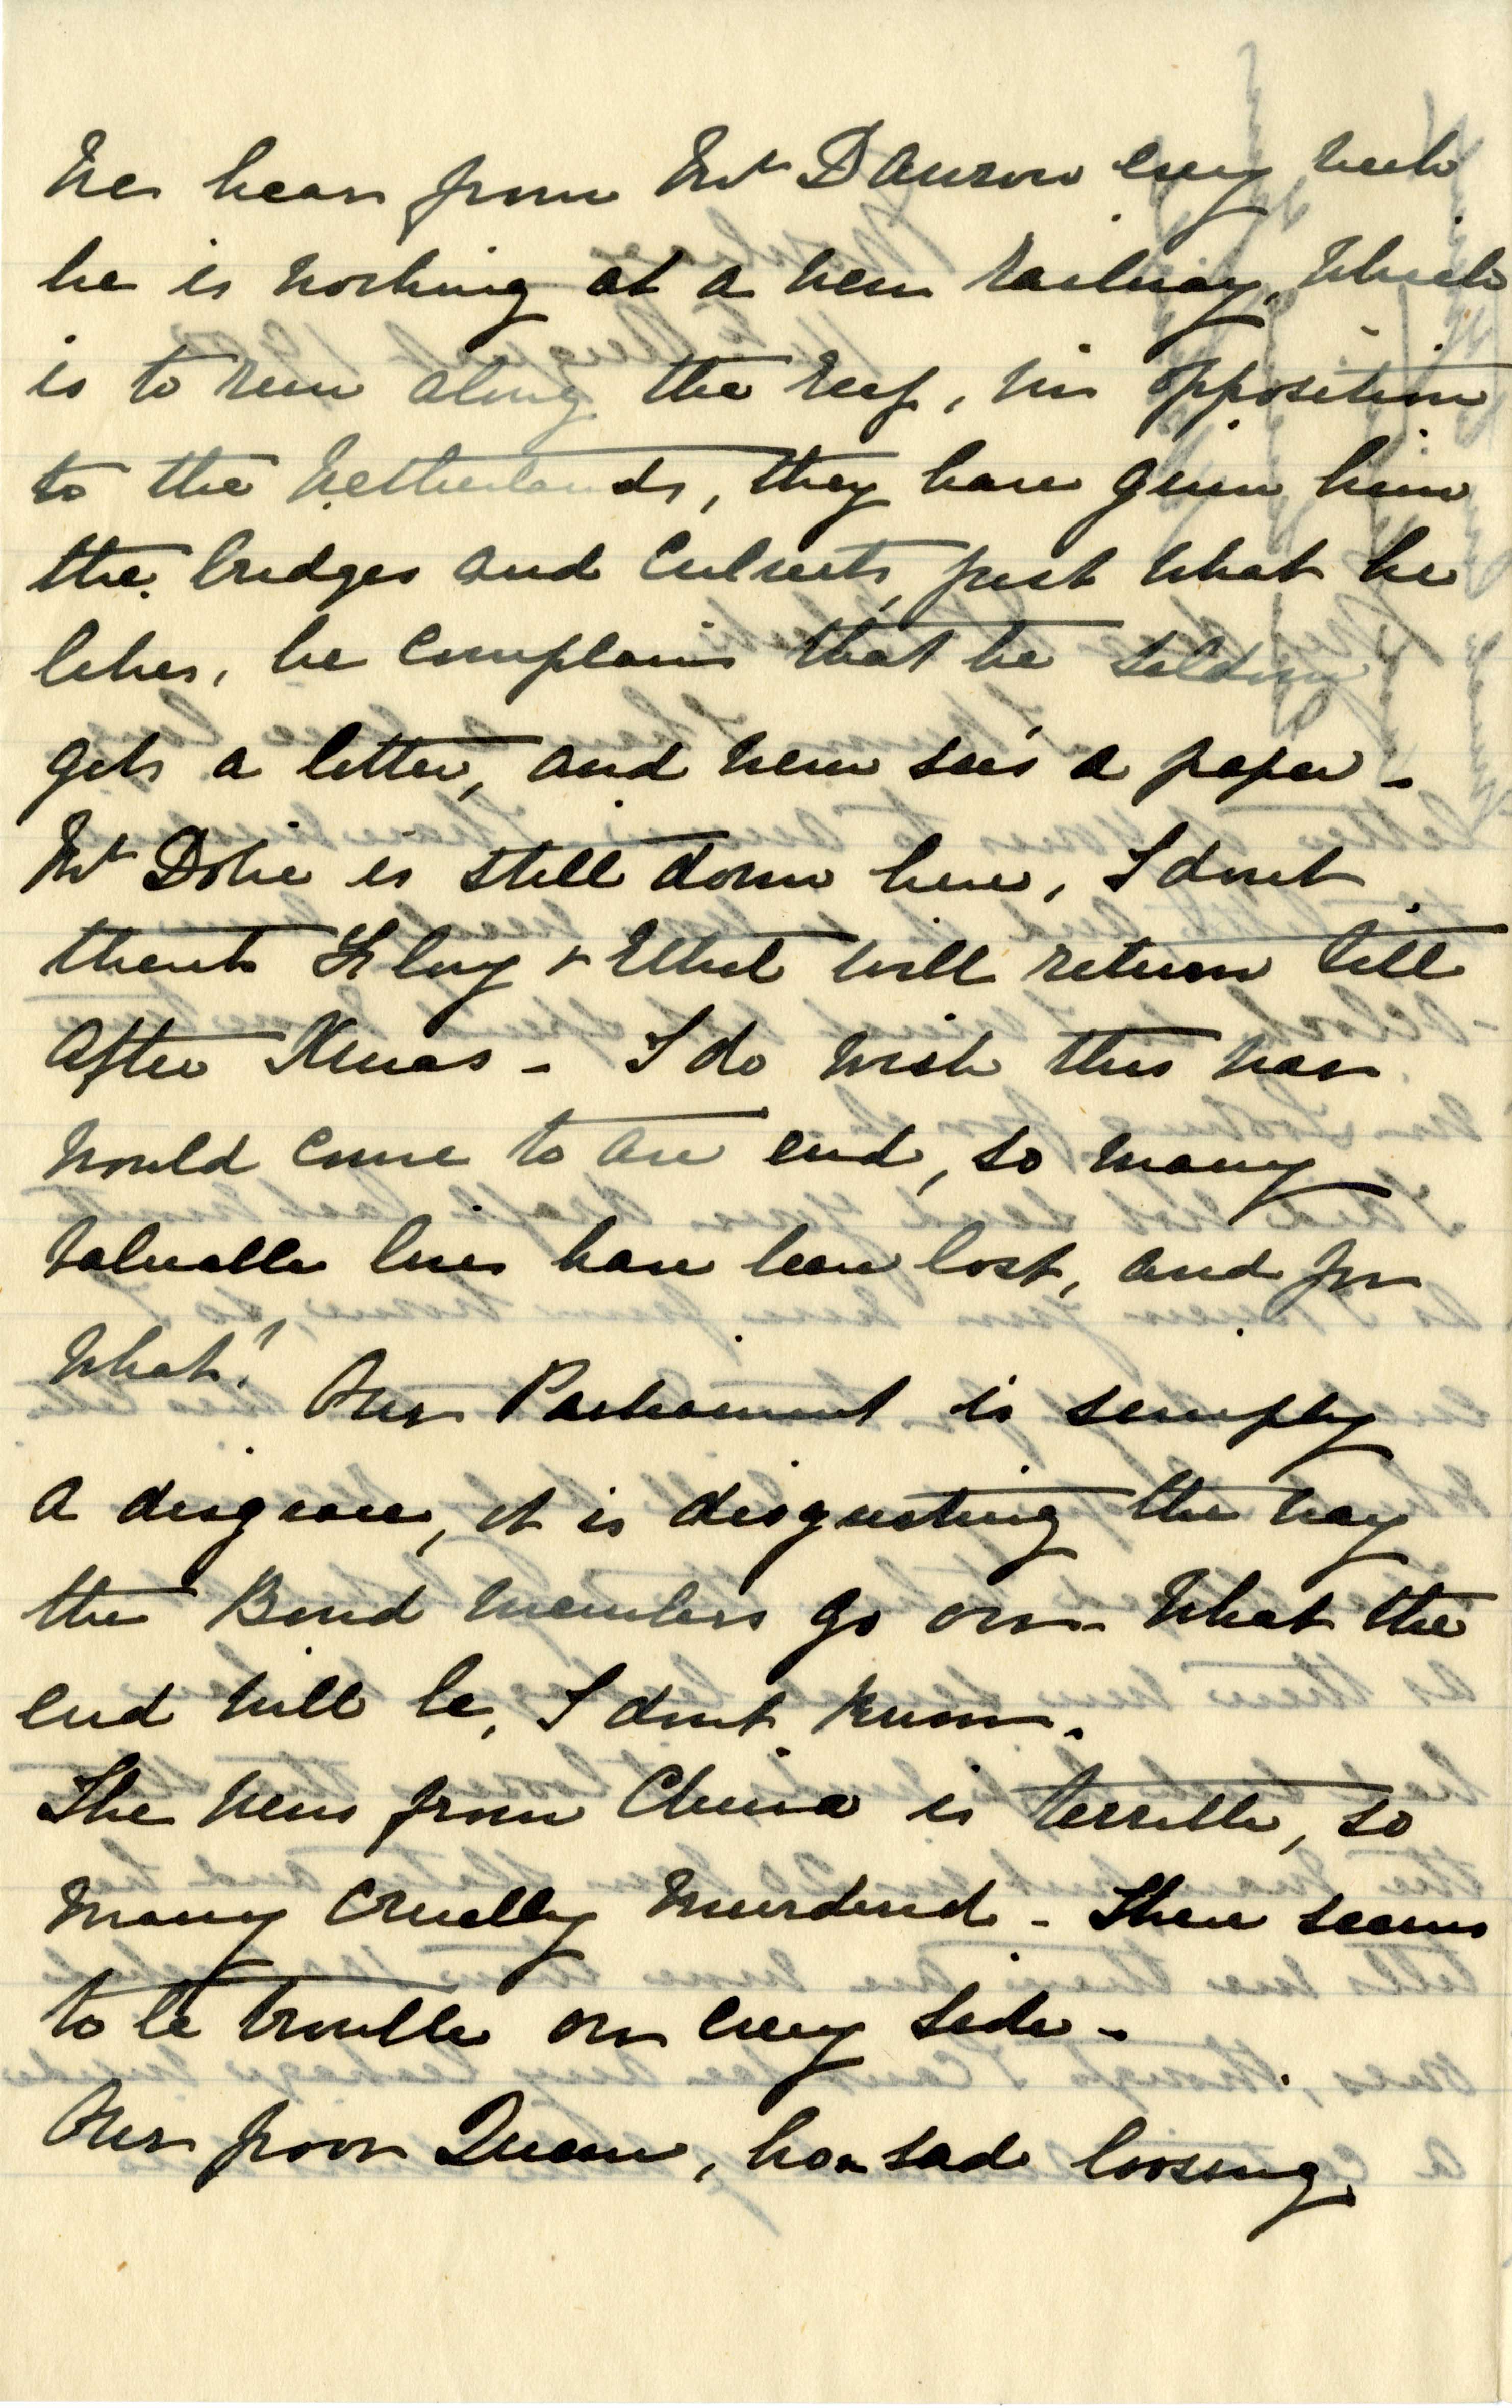 We hear from Mr Dawson every week
he is working at a new railway, which
is to run along the reef, in opposition
to the Netherlands, they have given him
the bridges and culverts, just what he
likes, he complains that he seldom
gets a letter, and never sees a paper -
Mr Dobie is still down here, I dont
think & Ethel will return till
after Xmas - I do wish this war
would come to an end, so many
valuable lives have been lost, and for
what! Our Parliament is simply
a disgrace, it is disgusting the way
the Bond members go on - What the
end will be, I dont know.
The news from China is terrible, so
many cruelly murdered - There seems
to be trouble on every side -
Our poor Queen, how sad loosing